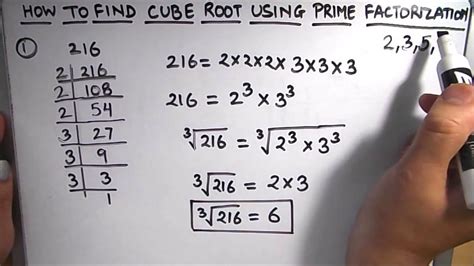 HOW TO FIND CUBE ROOT USING PRIME FACTORIZATION
2,3,5,
①
216
2 | 216
2 | 108
2 | 54
3 | 27
3 | 9
3 | 3
1
216 = 2×2×2×3×3×3
216 = 2³ × 3³
∛216 = ∛2³ × 3³
∛216 = 2×3
∛216 = 6